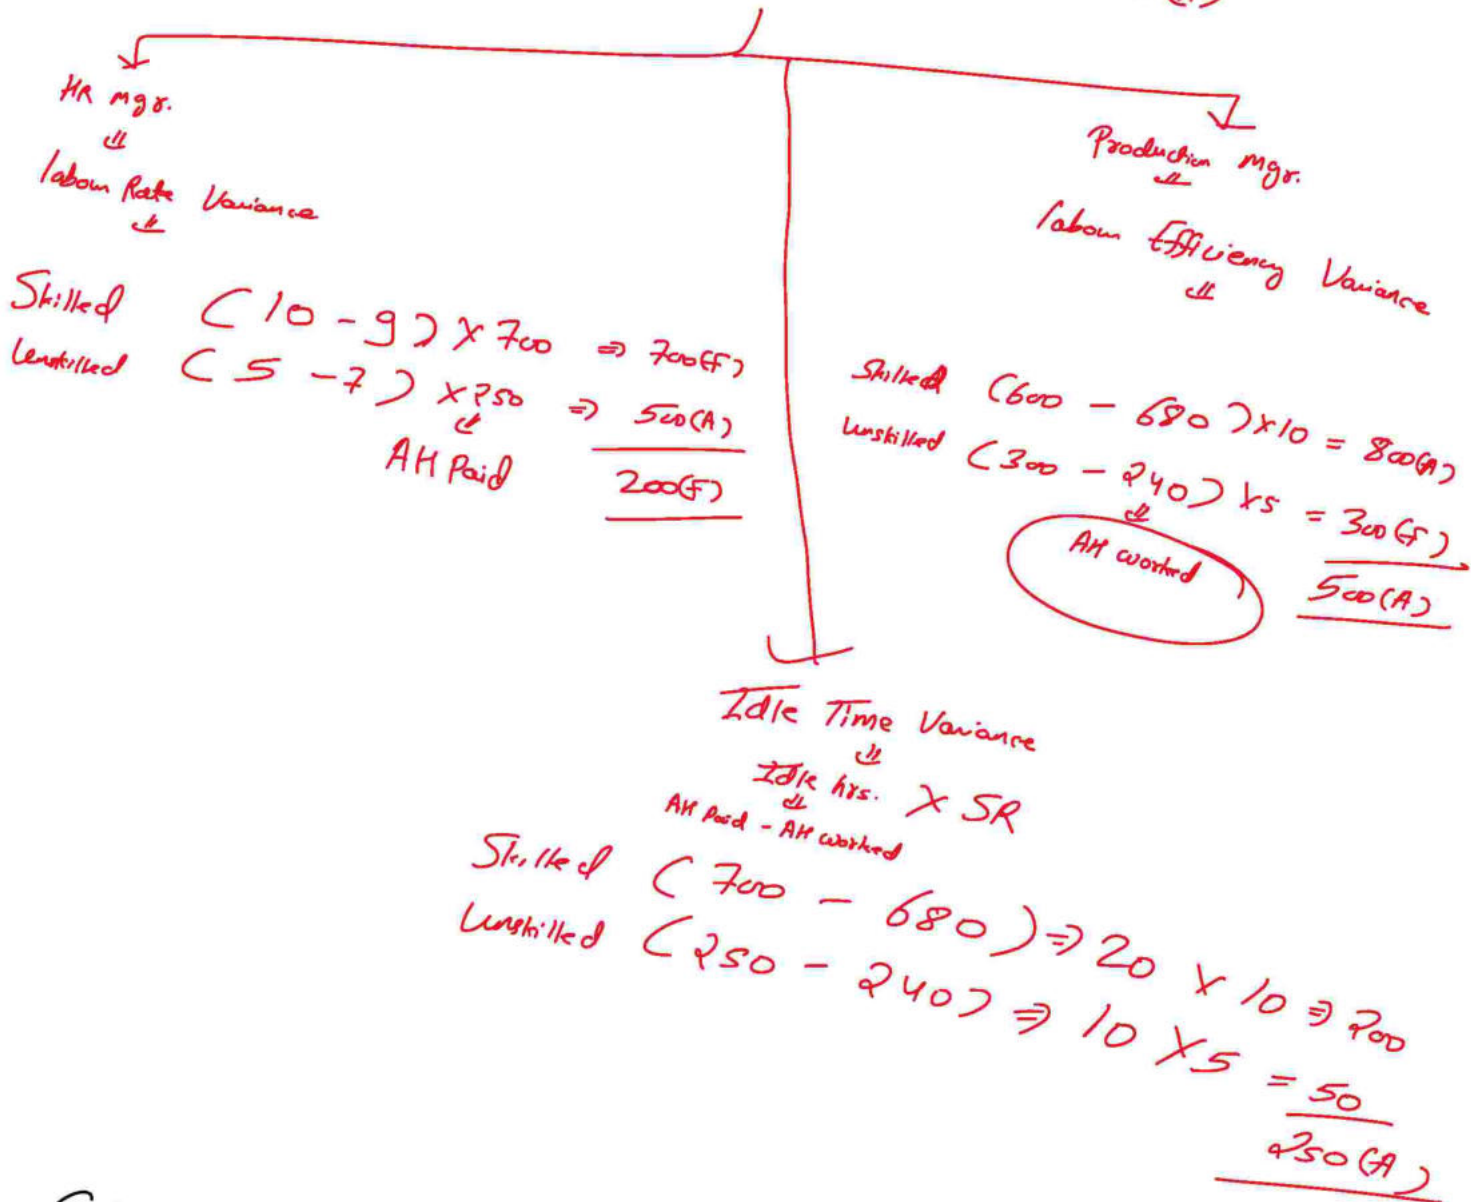 HR Mgr.
⇓
labour Rate Variance
⇓
Skilled (10 - 9) × 700 ⇒ 700(F)
Unskilled (5 - 7) × 250 ⇒ 500(A)
⇓
AH Paid 200(F)
Production Mgr.
⇓
labour Efficiency Variance
⇓
Skilled (600 - 680) × 10 = 800(A)
Unskilled (300 - 240) × 5 = 300(F)
⇓
AH worked 500(A)
Idle Time Variance
⇓
Idle hrs. × SR
⇓
AH Paid - AH worked
Skilled (700 - 680) ⇒ 20 × 10 ⇒ 200
Unskilled (250 - 240) ⇒ 10 × 5 = 50
250(A)